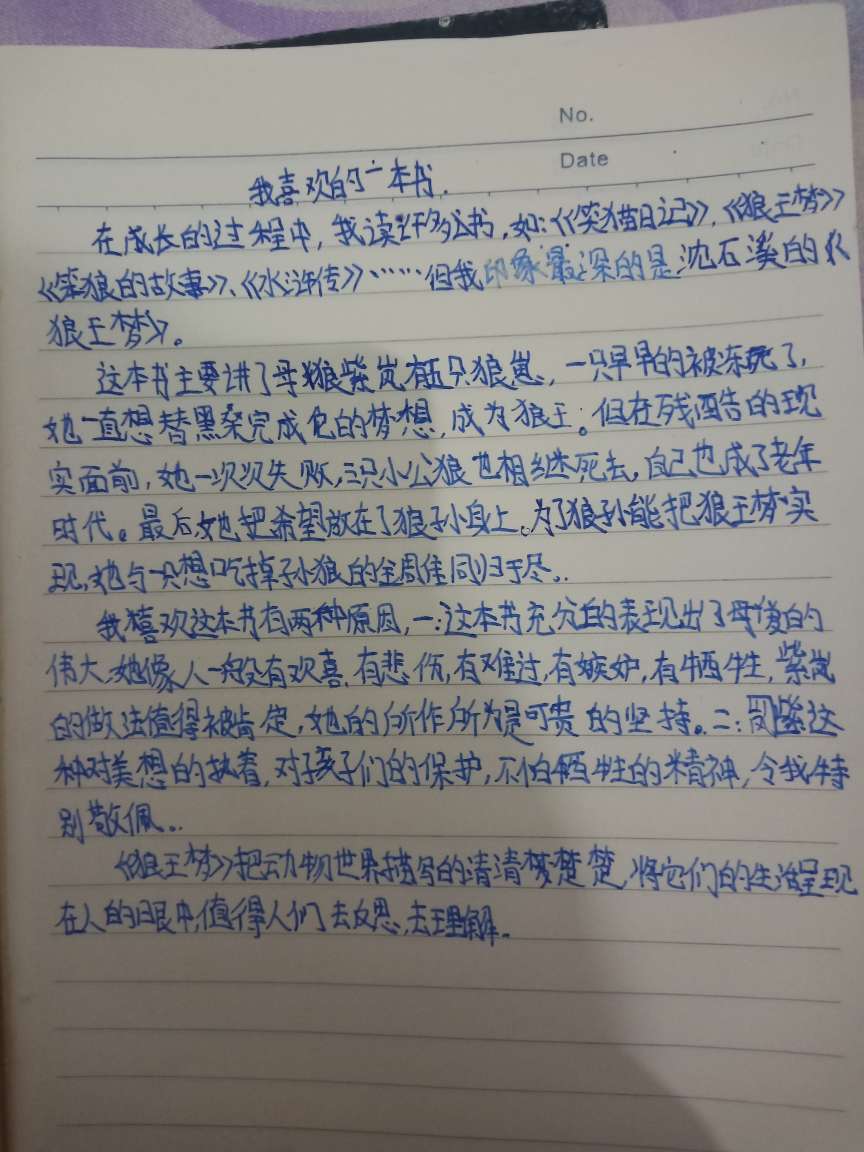 No.
Date
我喜欢的一本书.
在成长的过程中，我读许多书，如：《笑猫日记》，《狼王梦》
《笨狼的故事》、《水浒传》……但我印象最深的是沈石溪的《
狼王梦》。
这本书主要讲了母狼紫岚有五只狼崽，一只早早的被冻死了，
她一直想替黑桑完成它的梦想，成为狼王；但在残酷的现
实面前，她一次次失败，三只小公狼也相继死去，自己也成了老年
时代。最后，她把希望放在了狼孙身上。为了狼孙能把狼王梦实
现，她与一只想吃掉孙狼的金雕同归于尽。
我喜欢这本书有两种原因，一：这本书充分的表现出了母爱的
伟大，她像人一般有欢喜，有悲伤，有难过，有嫉妒，有牺牲，紫岚
的做法值得被肯定，她的所作所为是可贵的坚持。二：紫这
种对美想的执着，对孩子们的保护，不怕牺牲的精神，令我特
别敬佩。
《狼王梦》把动物世界描写的清清楚楚，将它们的生活呈现
在人的眼中，值得人们去反思，去理解。